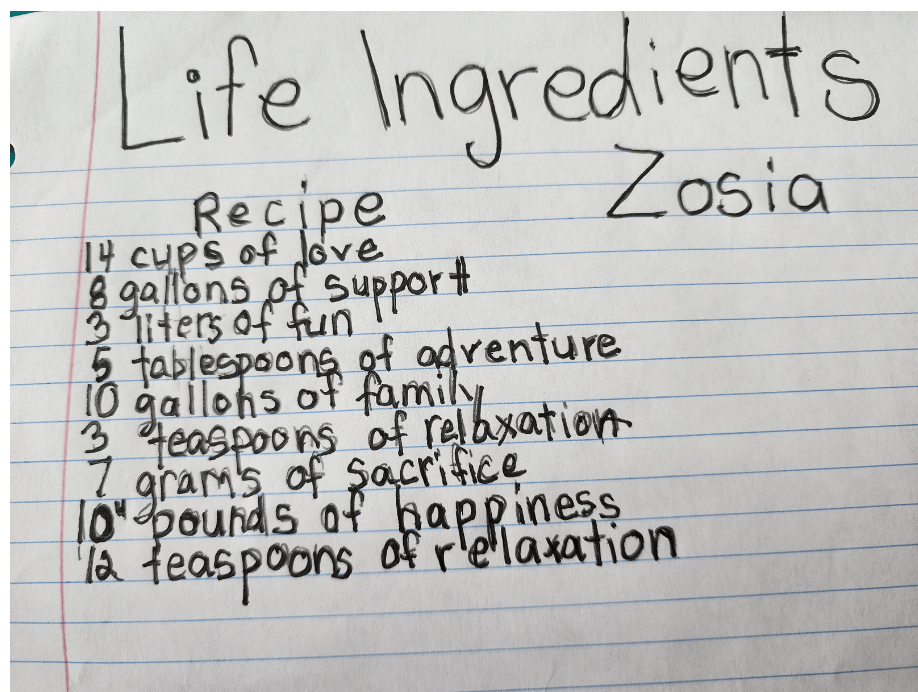 Life Ingredients
Zosia
Recipe
14 cups of love
8 gallons of support
3 liters of fun
5 tablespoons of adventure
10 gallons of family
3 teaspoons of relaxation
7 grams of sacrifice
10" pounds of happiness
12 teaspoons of relaxation